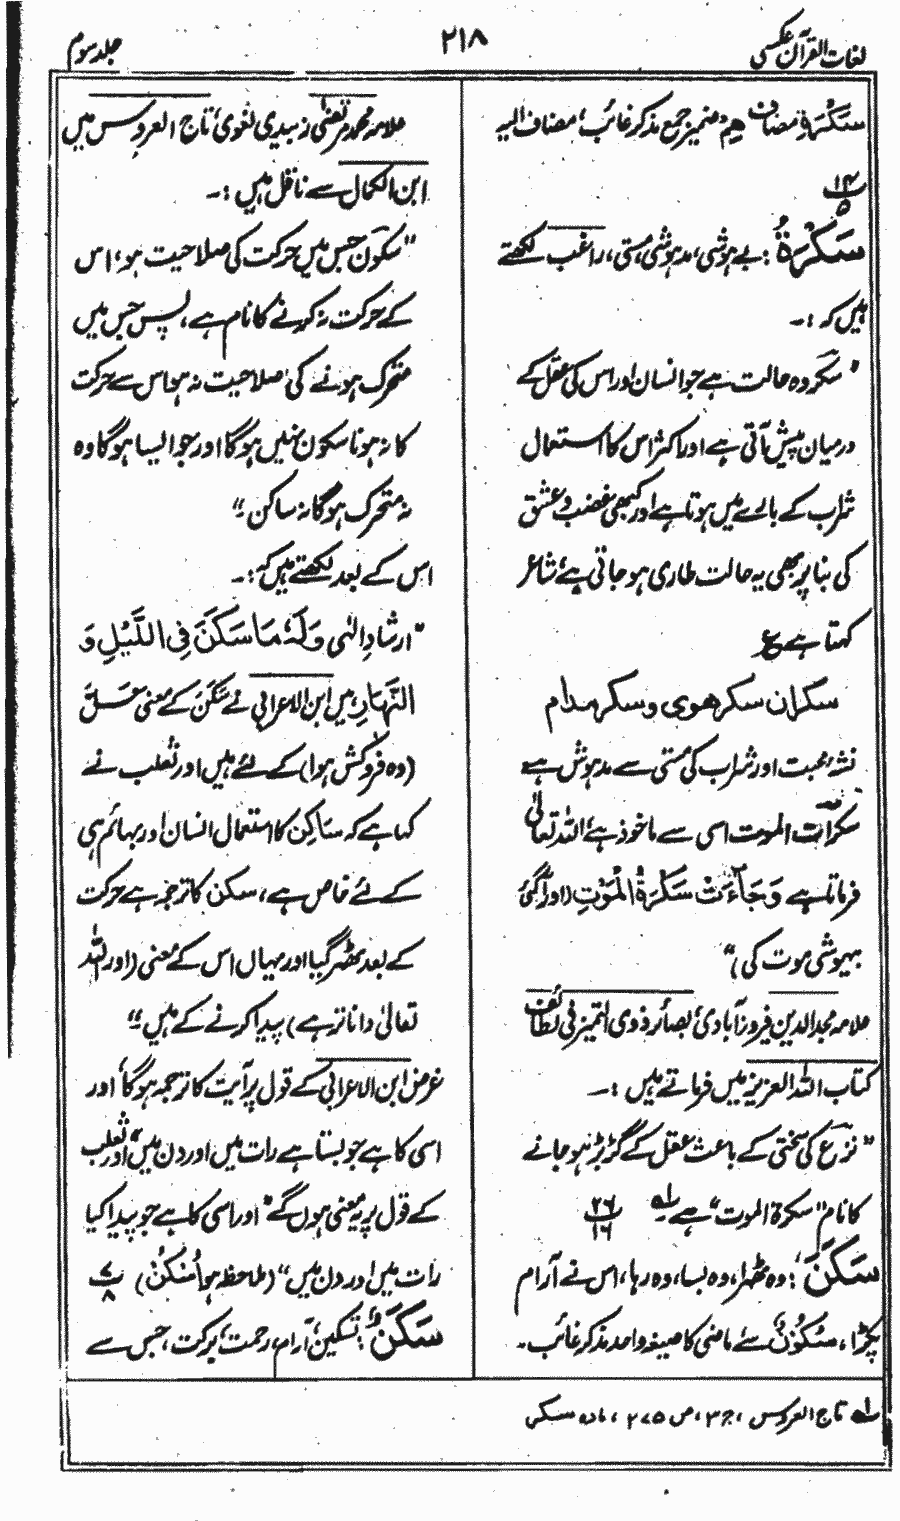 لغات القرآن عکسی
۲۱۸
جلد سوم
سَكْرَةٌ مضاف هِمْ ضمیر جمع مذکر غائب، مضاف الیہ
۱۴
۵
سَكْرَةُ : بے ہوشی، مدہوشی، مستی، راغب لکھتے
ہیں کہ :۔
" سکر وہ حالت ہے جو انسان اور اس کی عقل کے
درمیان پیش آتی ہے اور اکثر اس کا استعمال
شراب کے بارے میں ہوتا ہے اور کبھی غضب و عشق
کی بنا پر بھی یہ حالت طاری ہو جاتی ہے، شاعر
کہتا ہے ع
سکران سکر ھوی و سکر مدام
نشۂ محبت اور شراب کی مستی سے مدہوش ہے
سکرات الموت اسی سے ماخوذ ہے، اللہ تعالیٰ
فرماتا ہے وَجَآءَتْ سَكْرَةُ الْمَوْتِ (اور آ گئی
بیہوشی موت کی)"
علامہ مجد الدین فیروز آبادی، بصائر ذوی التمیز فی لطائف
کتاب اللہ العزیز میں فرماتے ہیں :۔
" نزع کی سختی کے باعث عقل کے گڑبڑ ہو جانے
کا نام "سکرة الموت" ہے لہ ۲۶
۱۶
سَكَنَ : وہ ٹھہرا، وہ بسا، وہ رہا، اس نے آرام
پکڑا، سُكُوْنٌ سے ماضی کا صیغہ واحد مذکر غائب۔
علامہ محمد مرتضیٰ زبیدی لغوی، تاج العروس میں
ابن الکمال سے ناقل ہیں :۔
" سکون جس میں حرکت کی صلاحیت ہو، اس
کے حرکت نہ کرنے کا نام ہے، پس جس میں
متحرک ہونے کی صلاحیت نہ ہو اس سے حرکت
کا نہ ہونا سکون نہیں ہوگا اور جو ایسا ہوگا وہ
نہ متحرک ہوگا نہ ساکن۔"
اس کے بعد لکھتے ہیں کہ :۔
" ارشادِ الٰہی وَلَهٗ مَا سَكَنَ فِی اللَّیْلِ وَ
النَّهَارِ میں ابن الاعرابی نے سَكَنَ کے معنی حَلَّ
(وہ فروکش ہوا) کے لئے ہیں اور ثعلب نے
کہا ہے کہ سَاكِنْ کا استعمال انسان اور بہائم ہی
کے لئے خاص ہے، سکن کا ترجمہ ہے حرکت
کے بعد ٹھہر گیا اور یہاں اس کے معنی (اور اللہ
تعالیٰ دانا تر ہے) پیدا کرنے کے ہیں۔"
غرض ابن الاعرابی کے قول پر آیت کا ترجمہ ہوگا، اور
اسی کا ہے جو بستا ہے رات میں اور دن میں" اور ثعلب
کے قول پر یہ معنی ہوں گے" اور اسی کا ہے جو پیدا کیا
رات میں اور دن میں" (ملاحظہ ہو اُسْكُنْ)
۷
۸
سَكَنٌ : تسکین، آرام، رحمت، برکت، جس سے
لہ تاج العروس، ج ۳، ص ۲۷۵، مادہ سکر